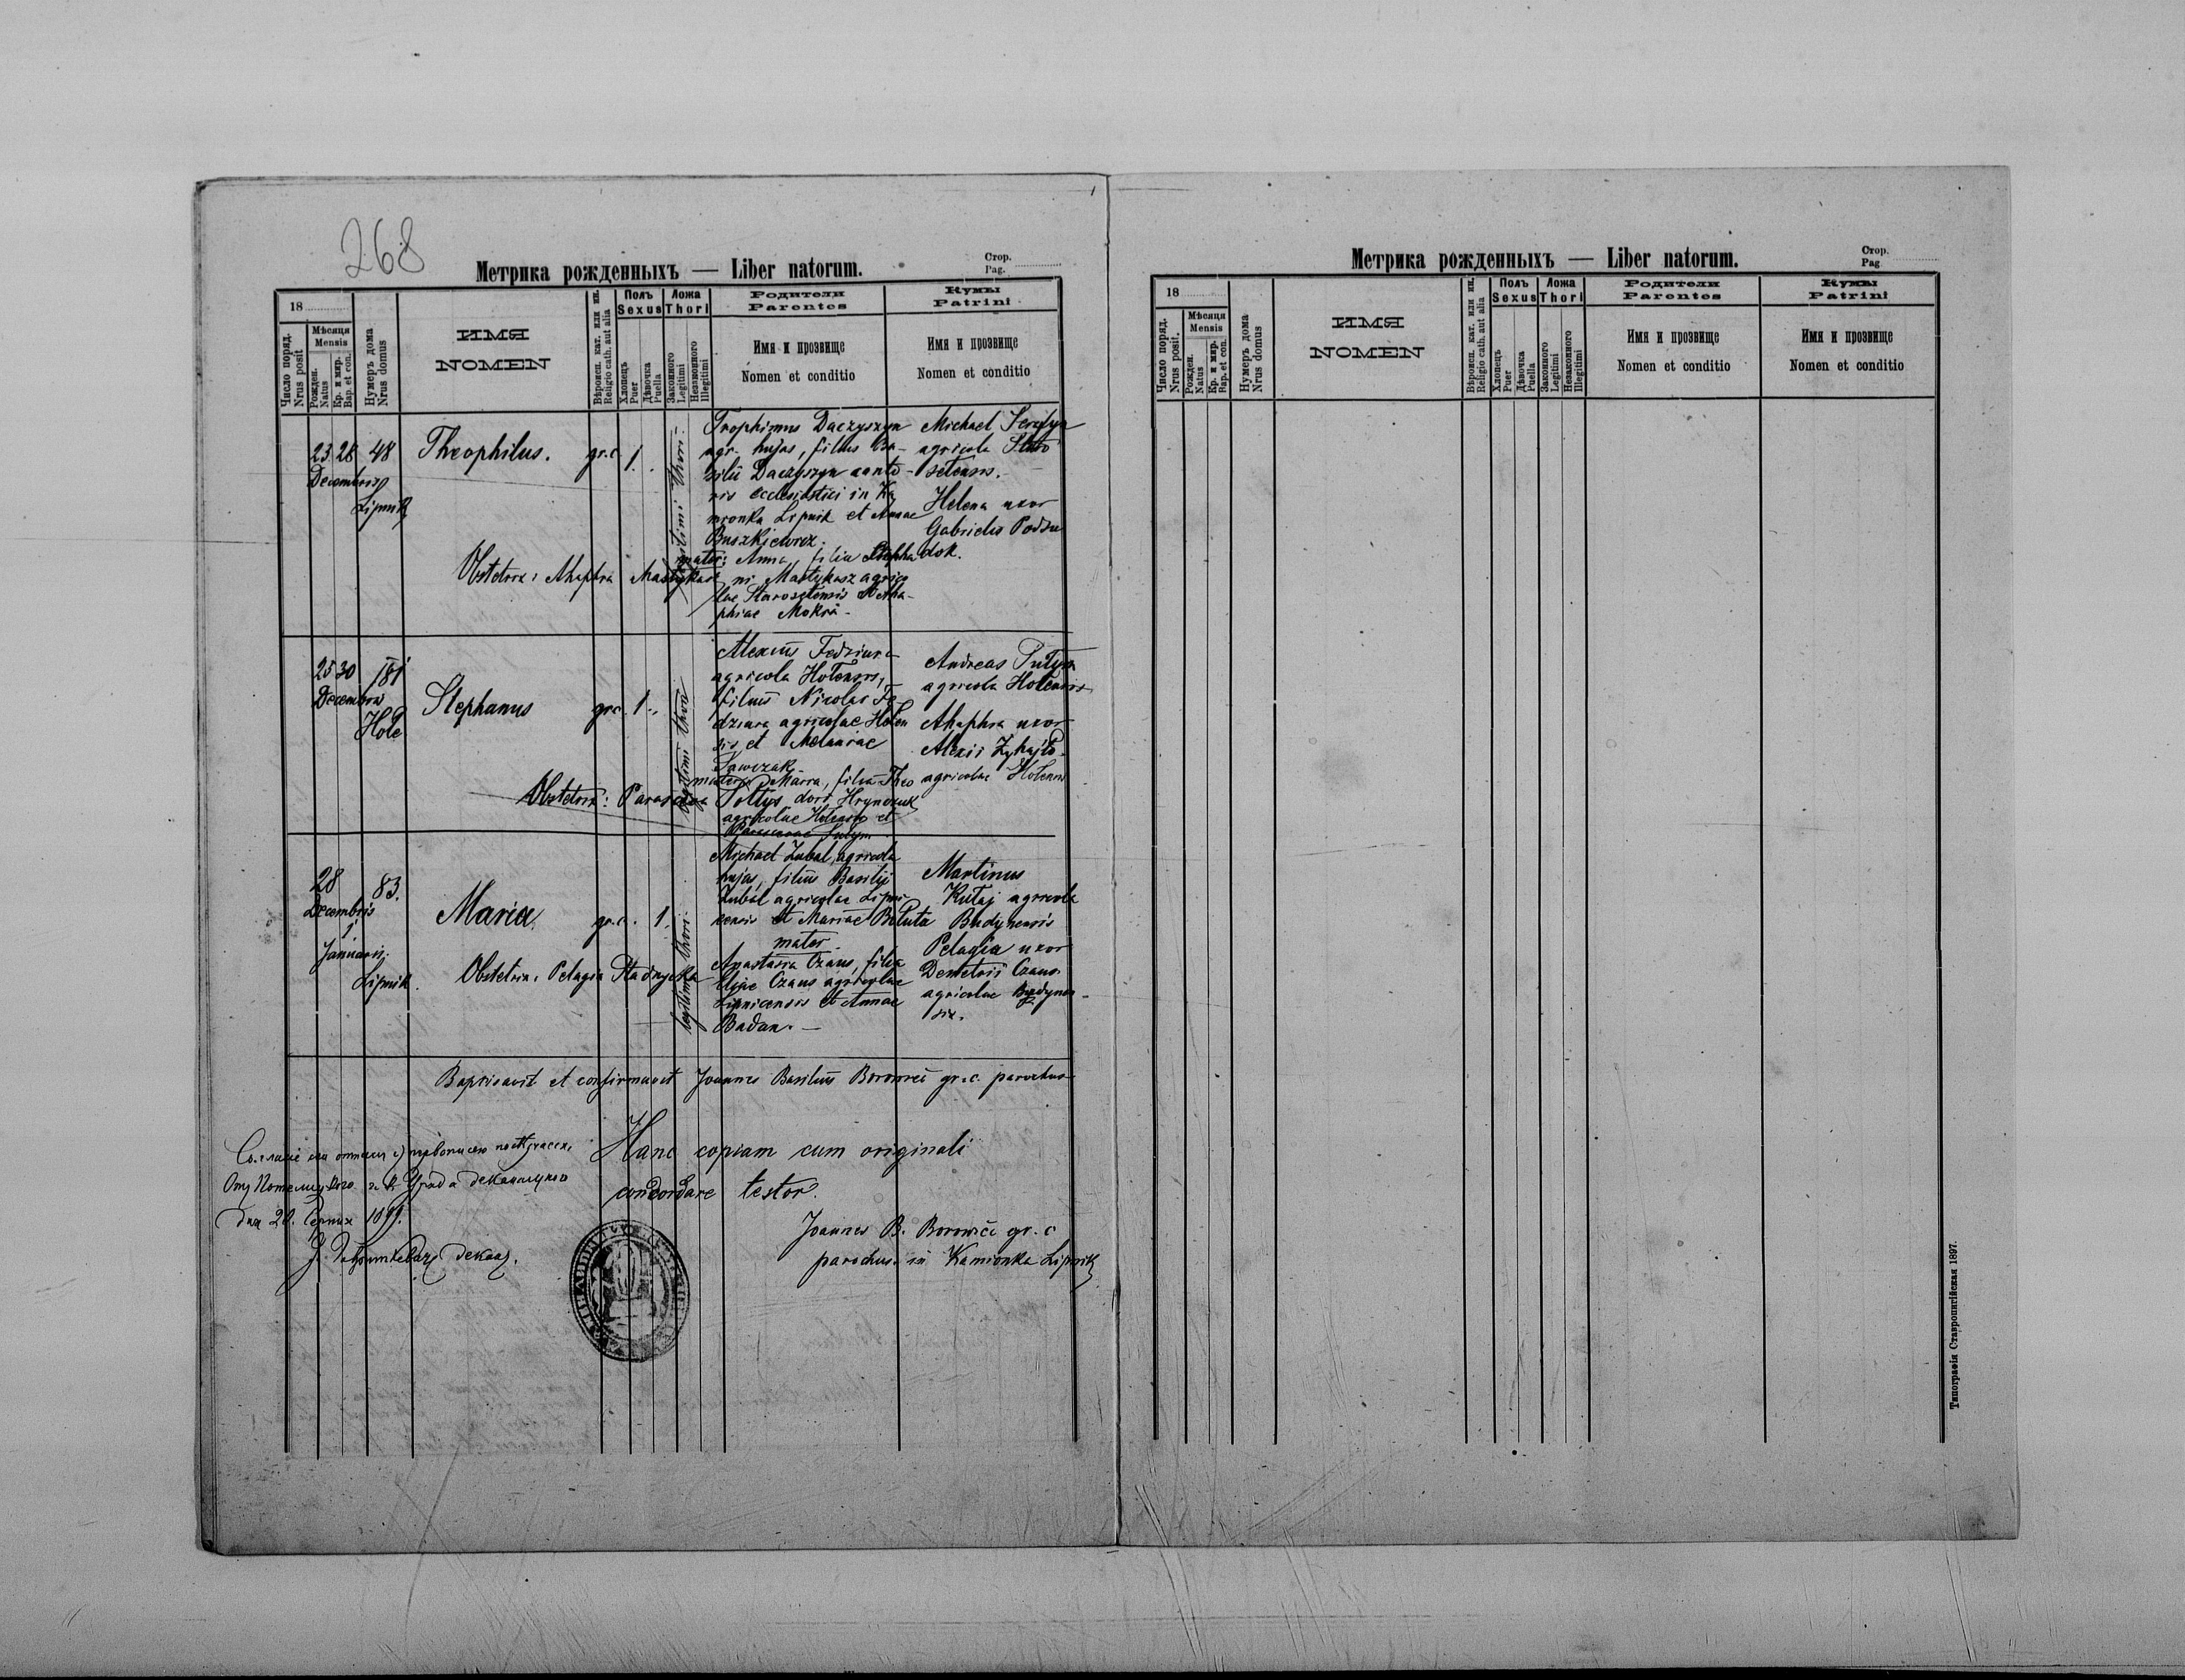 268
Метрика рожденныхъ — Liber natorum.
Стор.
Pag.
18
Число поряд.
Nrus posit
Мѣсяця
Mensis
Рожден.
Natus
Кр. и мир.
Bap. et con.
Нумеръ дома
Nrus domus
ИМЯ
NOMEN
Вѣроисп. кат. или ин.
Religio cath. aut alia
Полъ
Sexus
Хлопецъ
Puer
Дѣвочка
Puella
Ложа
Thori
Законного
Legitimi
Незаконного
Illegitimi
Родители
Parentes
Имя и прозвище
Nomen et conditio
Кумы
Patrini
Имя и прозвище
Nomen et conditio
23 28 48
Decembris
Lipnik
Theophilus.
gr.c
1.
legitimi thori.
Trophimus Daczyszyn
agr. hujas, filius Ba-
silii Daczyszyn canto-
ris ecclesiastici in Ka
mionka Lipnik et Annae
Buszkiewicz.
mater: Anna filia Stepha
ni Mastykasz agrico
lae Starosetensis et Aha-
phiae Mokra-
Michael
agricola Staro
setensis.
Helena uxor
Gabrielis Podsu
dok.
Obstetrix: Ahaphia Mastykasz
25 30 181
Decembris
Hole
Stephanus
gr.c.
1.
legitimi thori
Alexius Fedziura
agricola Holensis,
filius Nicolai Fe
dziura agricolae Holen
sis, et Melaniae
Sawczak.
mater: Maria, filia Theo
dori Hrynczuk
agricolae Holensis et
Parascevae
Andreas
agricola Holensis
Ahaphia uxor
Alexii
agricolae Holensis
Obstetrix: Parasceva
28 83.
Decembris
1
Januarii.
Lipnik.
Maria.
gr.c.
1.
legitimi thori.
Michael Zubal, agricola
hujas, filius Basilij
Zubal agricolae Lipni
censis et Mariae Boluta
mater
Anastasia Czaus, filia
Eliae Czaus agricolae
Lipnicensis et Annae
Badan. —
Martinus
Kutaj agricola
Budynensis
Pelagia uxor
Demetrii Czaus
agricolae Budynen-
sis.
Obstetrix: Pelagia Stadnycka
Baptisavit et confirmavit Joannes Basilius Borowicz gr.c. parochus
Hanc copiam cum originali
concordare testor.
Joannes B. Borowicz gr. c
parochus in Kamionka Lipnik
Дня 20. Серпня 1899.
декан.
Метрика рожденныхъ — Liber natorum.
Стор.
Pag
18
Число поряд.
Nrus posit.
Мѣсяця
Mensis
Рожден.
Natus
Кр. и мир.
Bap. et con.
Нумеръ дома
Nrus domus
ИМЯ
NOMEN
Вѣроисп. кат. или ин.
Religio cath. aut alia
Полъ
Sexus
Хлопецъ
Puer
Дѣвочка
Puella
Ложа
Thori
Законного
Legitimi
Незаконного
Illegitimi
Родители
Parentes
Имя и прозвище
Nomen et conditio
Кумы
Patrini
Имя и прозвище
Nomen et conditio
Типографія Ставропигійская 1897.